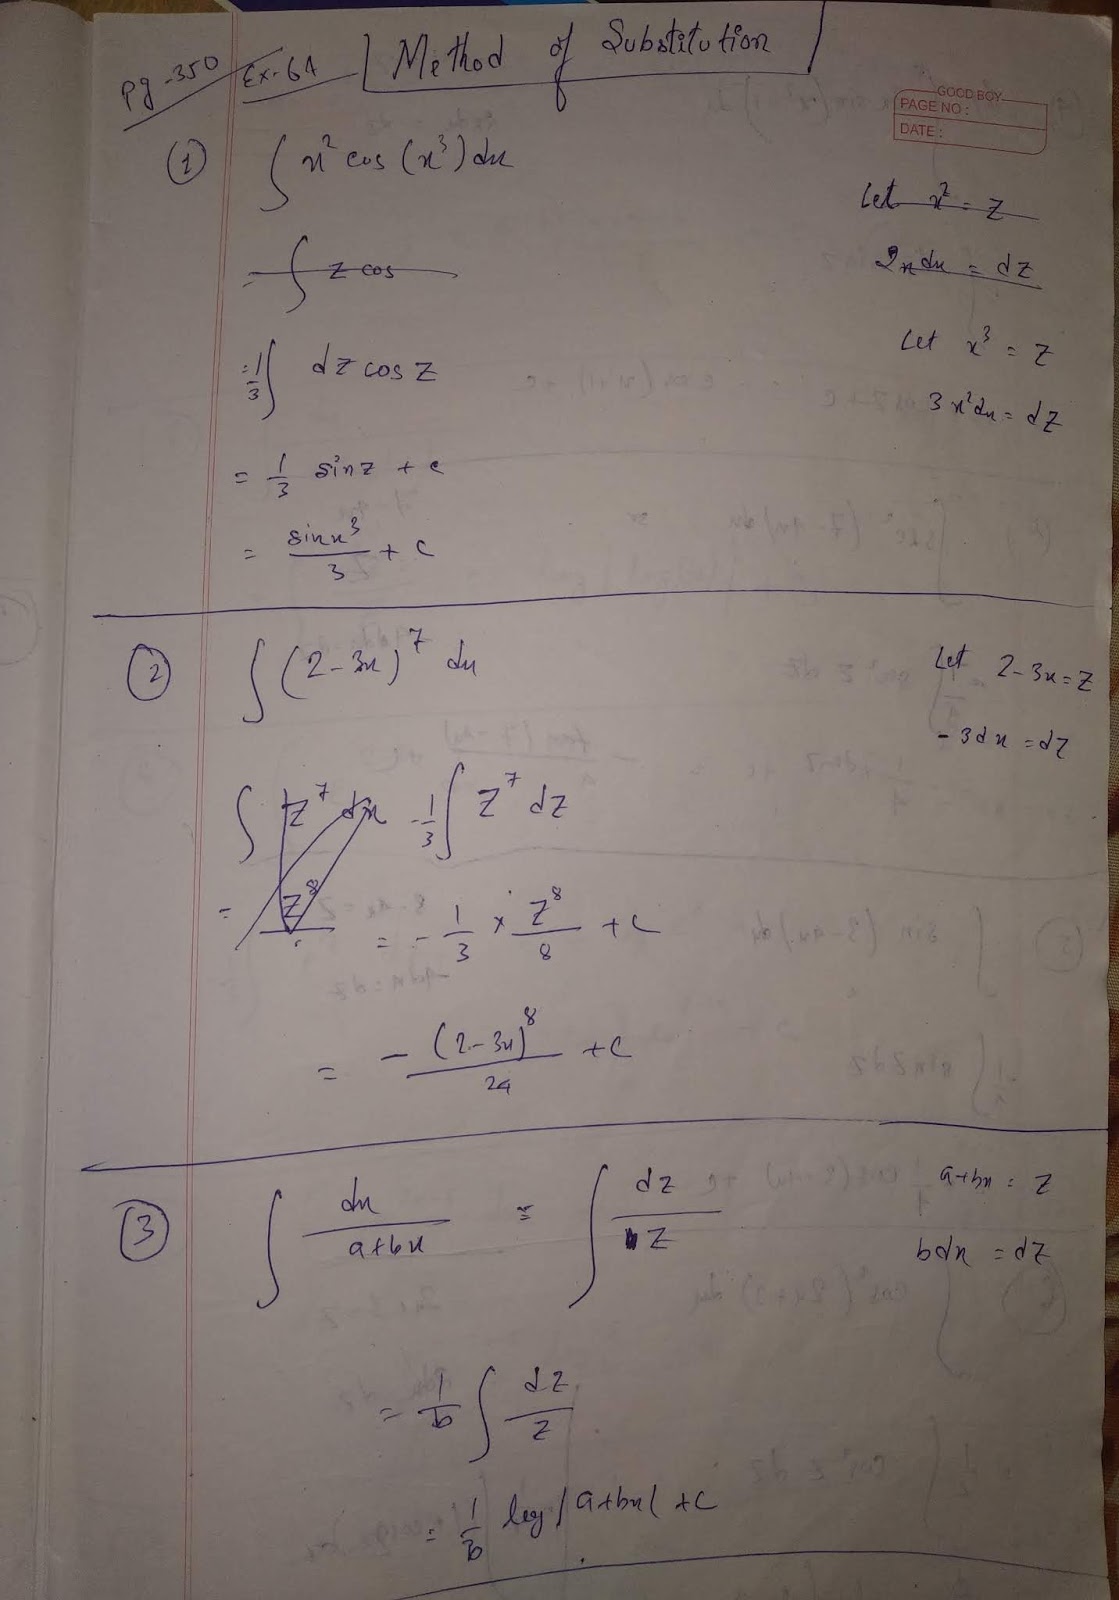 pg-350 Ex-6A Method of Substitution
GOOD BOY
PAGE NO :
DATE :
① ∫ x² cos (x³) dx
Let x² = z
= ∫ z cos
2x dx = dz
Let x³ = z
= 1/3 ∫ dz cos z
3x² dx = dz
= 1/3 sin z + c
= sin x³ / 3 + c
② ∫ (2-3x)⁷ dx
Let 2-3x = z
-3dx = dz
∫ z⁷ dx -1/3 ∫ z⁷ dz
= z⁸ = - 1/3 × z⁸/8 + c
= - (2-3x)⁸ / 24 + c
③ ∫ dx / a+bx = ∫ dz / bz
a+bx = z
bdx = dz
= 1/b ∫ dz / z
= 1/b log |a+bx| + c